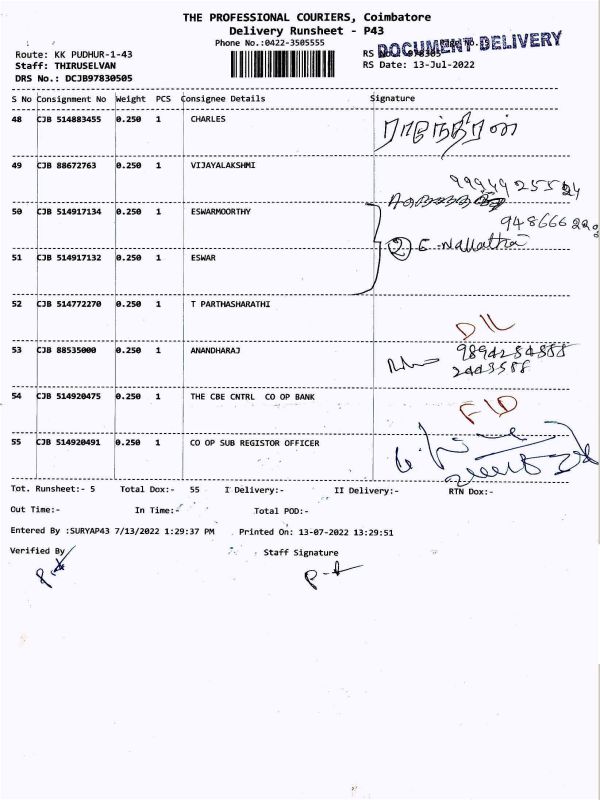 THE PROFESSIONAL COURIERS, Coimbatore
Delivery Runsheet - P43
Phone No.:0422-3505555
DOCUMENT DELIVERY
Route: KK PUDHUR-1-43
RS
Staff: THIRUSELVAN
RS Date: 13-Jul-2022
DRS No.: DCJB97830505
S No Consignment No Weight PCS Consignee Details Signature
48 CJB 514883455 0.250 1 CHARLES ராஜேந்திரன்
49 CJB 88672763 0.250 1 VIJAYALAKSHMI
50 CJB 514917134 0.250 1 ESWARMOORTHY
51 CJB 514917132 0.250 1 ESWAR
2
52 CJB 514772270 0.250 1 T PARTHASHARATHI
D/L
53 CJB 88535000 0.250 1 ANANDHARAJ
54 CJB 514920475 0.250 1 THE CBE CNTRL CO OP BANK
55 CJB 514920491 0.250 1 CO OP SUB REGISTOR OFFICER
Tot. Runsheet:- 5 Total Dox:- 55 I Delivery:- II Delivery:- RTN Dox:-
Out Time:- In Time:- Total POD:-
Entered By :SURYAP43 7/13/2022 1:29:37 PM Printed On: 13-07-2022 13:29:51
Verified By Staff Signature